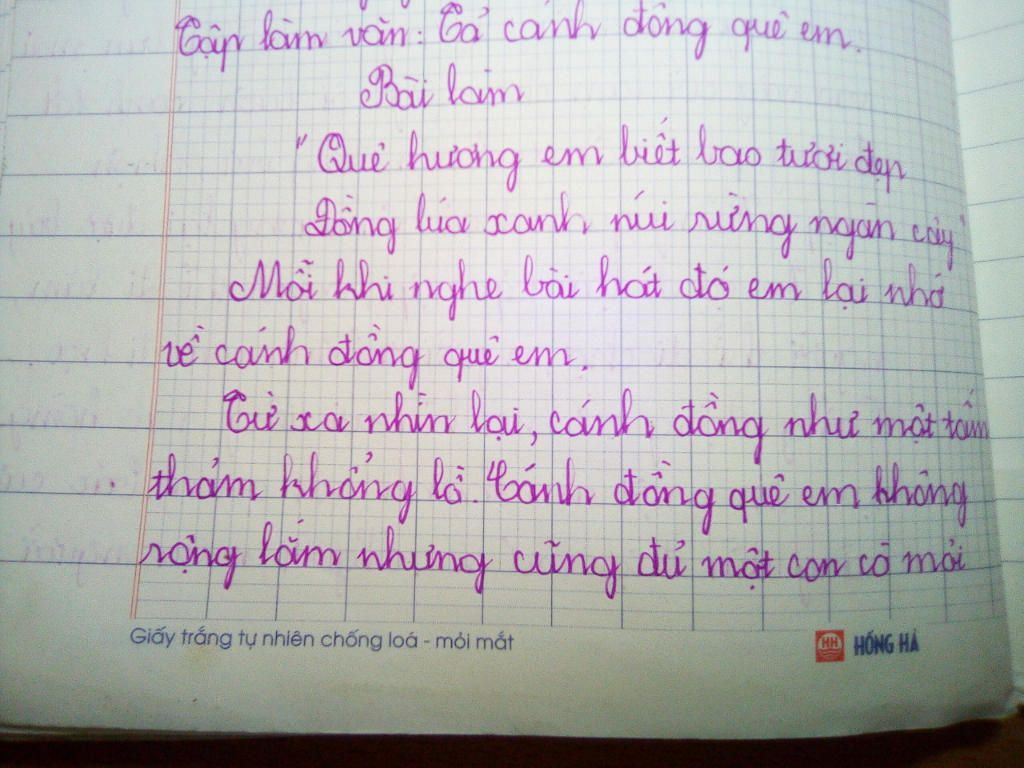 Tập làm văn: Tả cánh đồng quê em.
Bài làm
"Quê hương em biết bao tươi đẹp
Đồng lúa xanh núi rừng ngàn cây"
Mỗi khi nghe bài hát đó em lại nhớ
về cánh đồng quê em.
Từ xa nhìn lại, cánh đồng như một tấm
thảm khổng lồ. Cánh đồng quê em không
rộng lắm nhưng cũng đủ một con cò mỏi
Giấy trắng tự nhiên chống loá - mỏi mắt
HH HỒNG HÀ